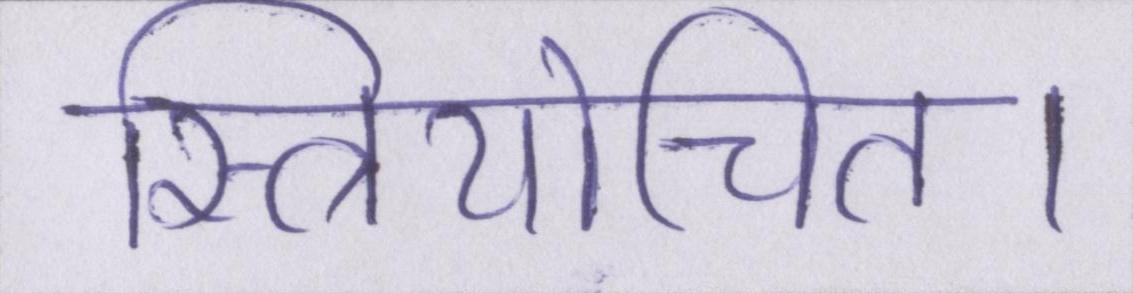 स्त्रियोचित।